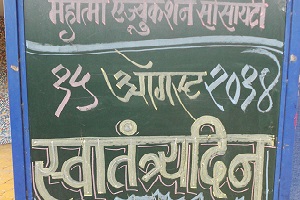 महात्मा एज्युकेशन सोसायटी
१५ ऑगस्ट २०१४
स्वातंत्र्यदिन